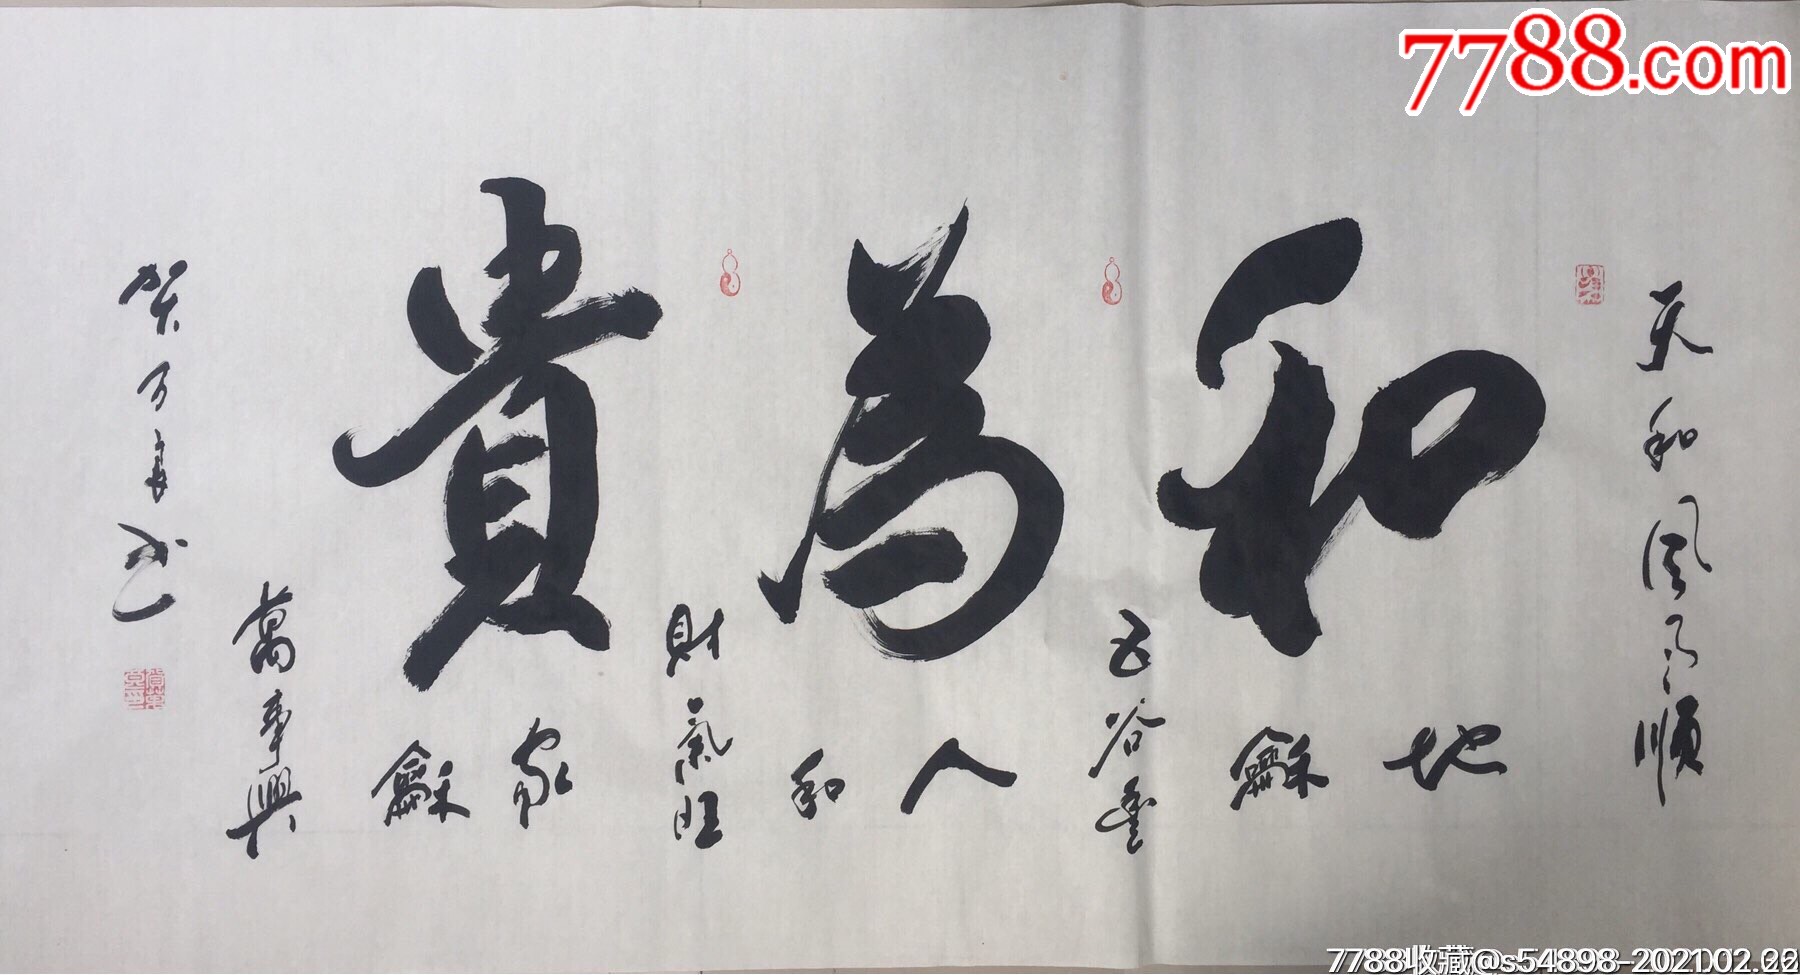 7788.com
和為貴
天和風雨順
地龢
五谷豐
人和
財氣旺
家龢
萬事興
賀万年书
7788收藏@s54898-2021.02.22